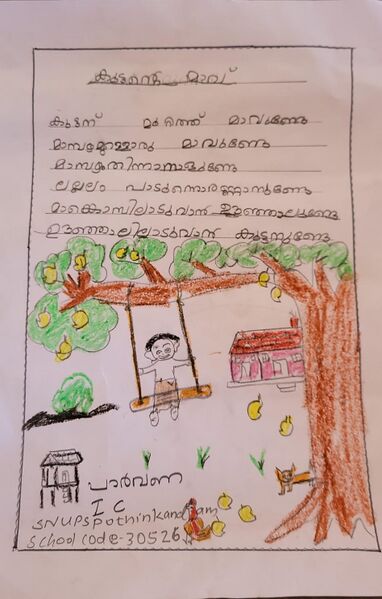 കുട്ടന്റെ മാവ്
കുട്ടന് മുറ്റത്ത് മാവുണ്ടേ
മാമ്പഴമുള്ളൊരു മാവുണ്ടേ
മാമ്പഴംതിന്നാനാളുണ്ടേ
ലല്ലലം പാടുന്നൊരണ്ണാനുണ്ടേ
മാങ്കൊമ്പിലാടുവാൻ ഊഞ്ഞാലുണ്ടേ
ഊഞ്ഞാലിലാടുവാൻ കുട്ടനുണ്ടേ
പാർവണ
I C
SNUPS pothinkandam
School code-30526